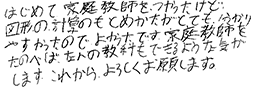 はじめて家庭教師をつかったけど、
図形の計算のもとめかたがとても、分かり
やすかったのでよかったです家庭教師を
たのべば、ほかの教科もできるような気が
します。これから、よろしくお願します。